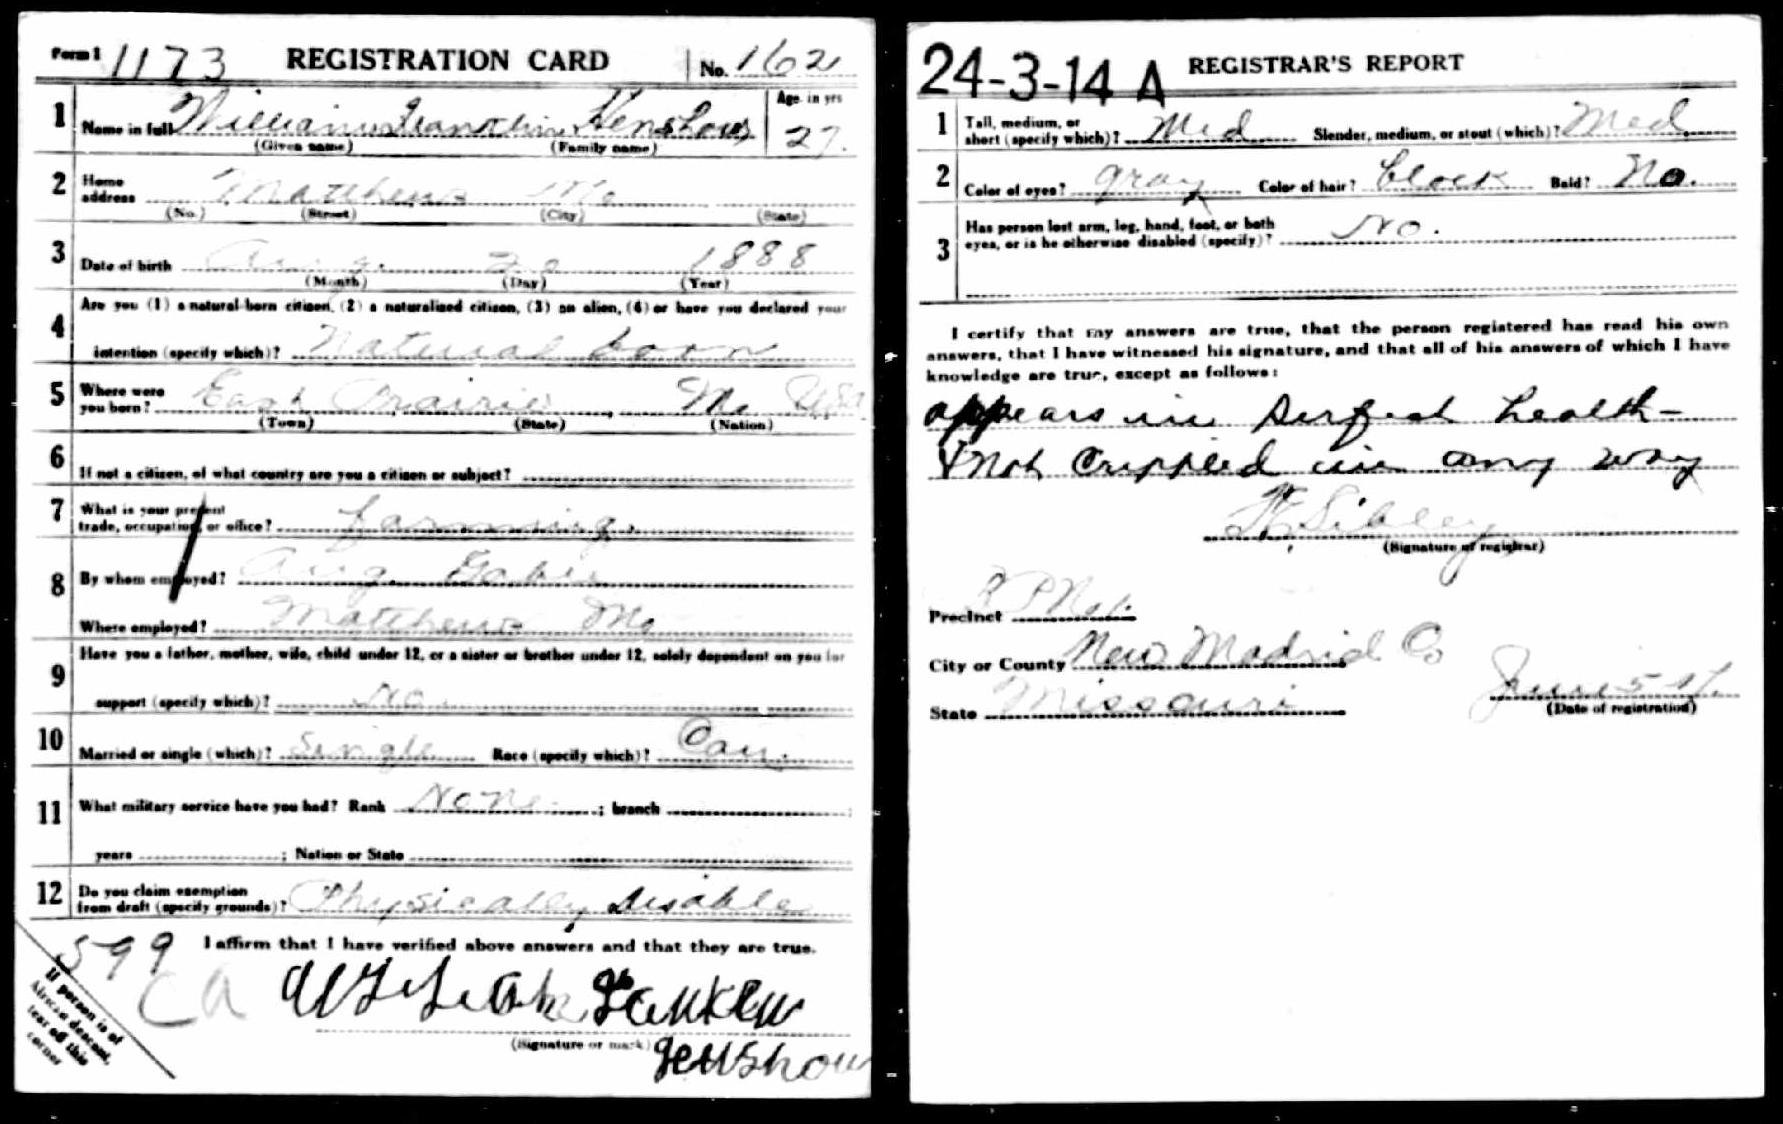 Form 1 1173 REGISTRATION CARD No. 162
1 Name in full William Franklin Henshaw Age in yrs 27.
(Given name) (Family name)
2 Home address Matthews Mo
(No.) (Street) (City) (State)
3 Date of birth Aug. 20 1888
(Month) (Day) (Year)
4 Are you (1) a natural-born citizen, (2) a naturalized citizen, (3) an alien, (4) or have you declared your
intention (specify which)? Natural born
5 Where were you born? East Prairie, Mo USA
(Town) (State) (Nation)
6 If not a citizen, of what country are you a citizen or subject?
7 What is your present trade, occupation, or office? farming.
8 By whom employed? Aug.
Where employed? Matthews Mo
9 Have you a father, mother, wife, child under 12, or a sister or brother under 12, solely dependent on you for
support (specify which)? No
10 Married or single (which)? Single Race (specify which)? Cau.
11 What military service have you had? Rank None ; branch ;
years ; Nation or State
12 Do you claim exemption from draft (specify grounds)? Physically Disable
I affirm that I have verified above answers and that they are true.
599
CA
(Signature or mark)
If person is of
African descent,
tear off this
corner
24-3-14 A REGISTRAR'S REPORT
1 Tall, medium, or short (specify which)? Med Slender, medium, or stout (which)? Med
2 Color of eyes? gray Color of hair? black Bald? No.
3 Has person lost arm, leg, hand, foot, or both
eyes, or is he otherwise disabled (specify)? No.
I certify that my answers are true, that the person registered has read his own
answers, that I have witnessed his signature, and that all of his answers of which I have
knowledge are true, except as follows:
appears in perfect health-
& not Crippled in any way
Sibley
(Signature of registrar)
Precinct
City or County New Madrid Co
State Missouri June 5 - 17.
(Date of registration)